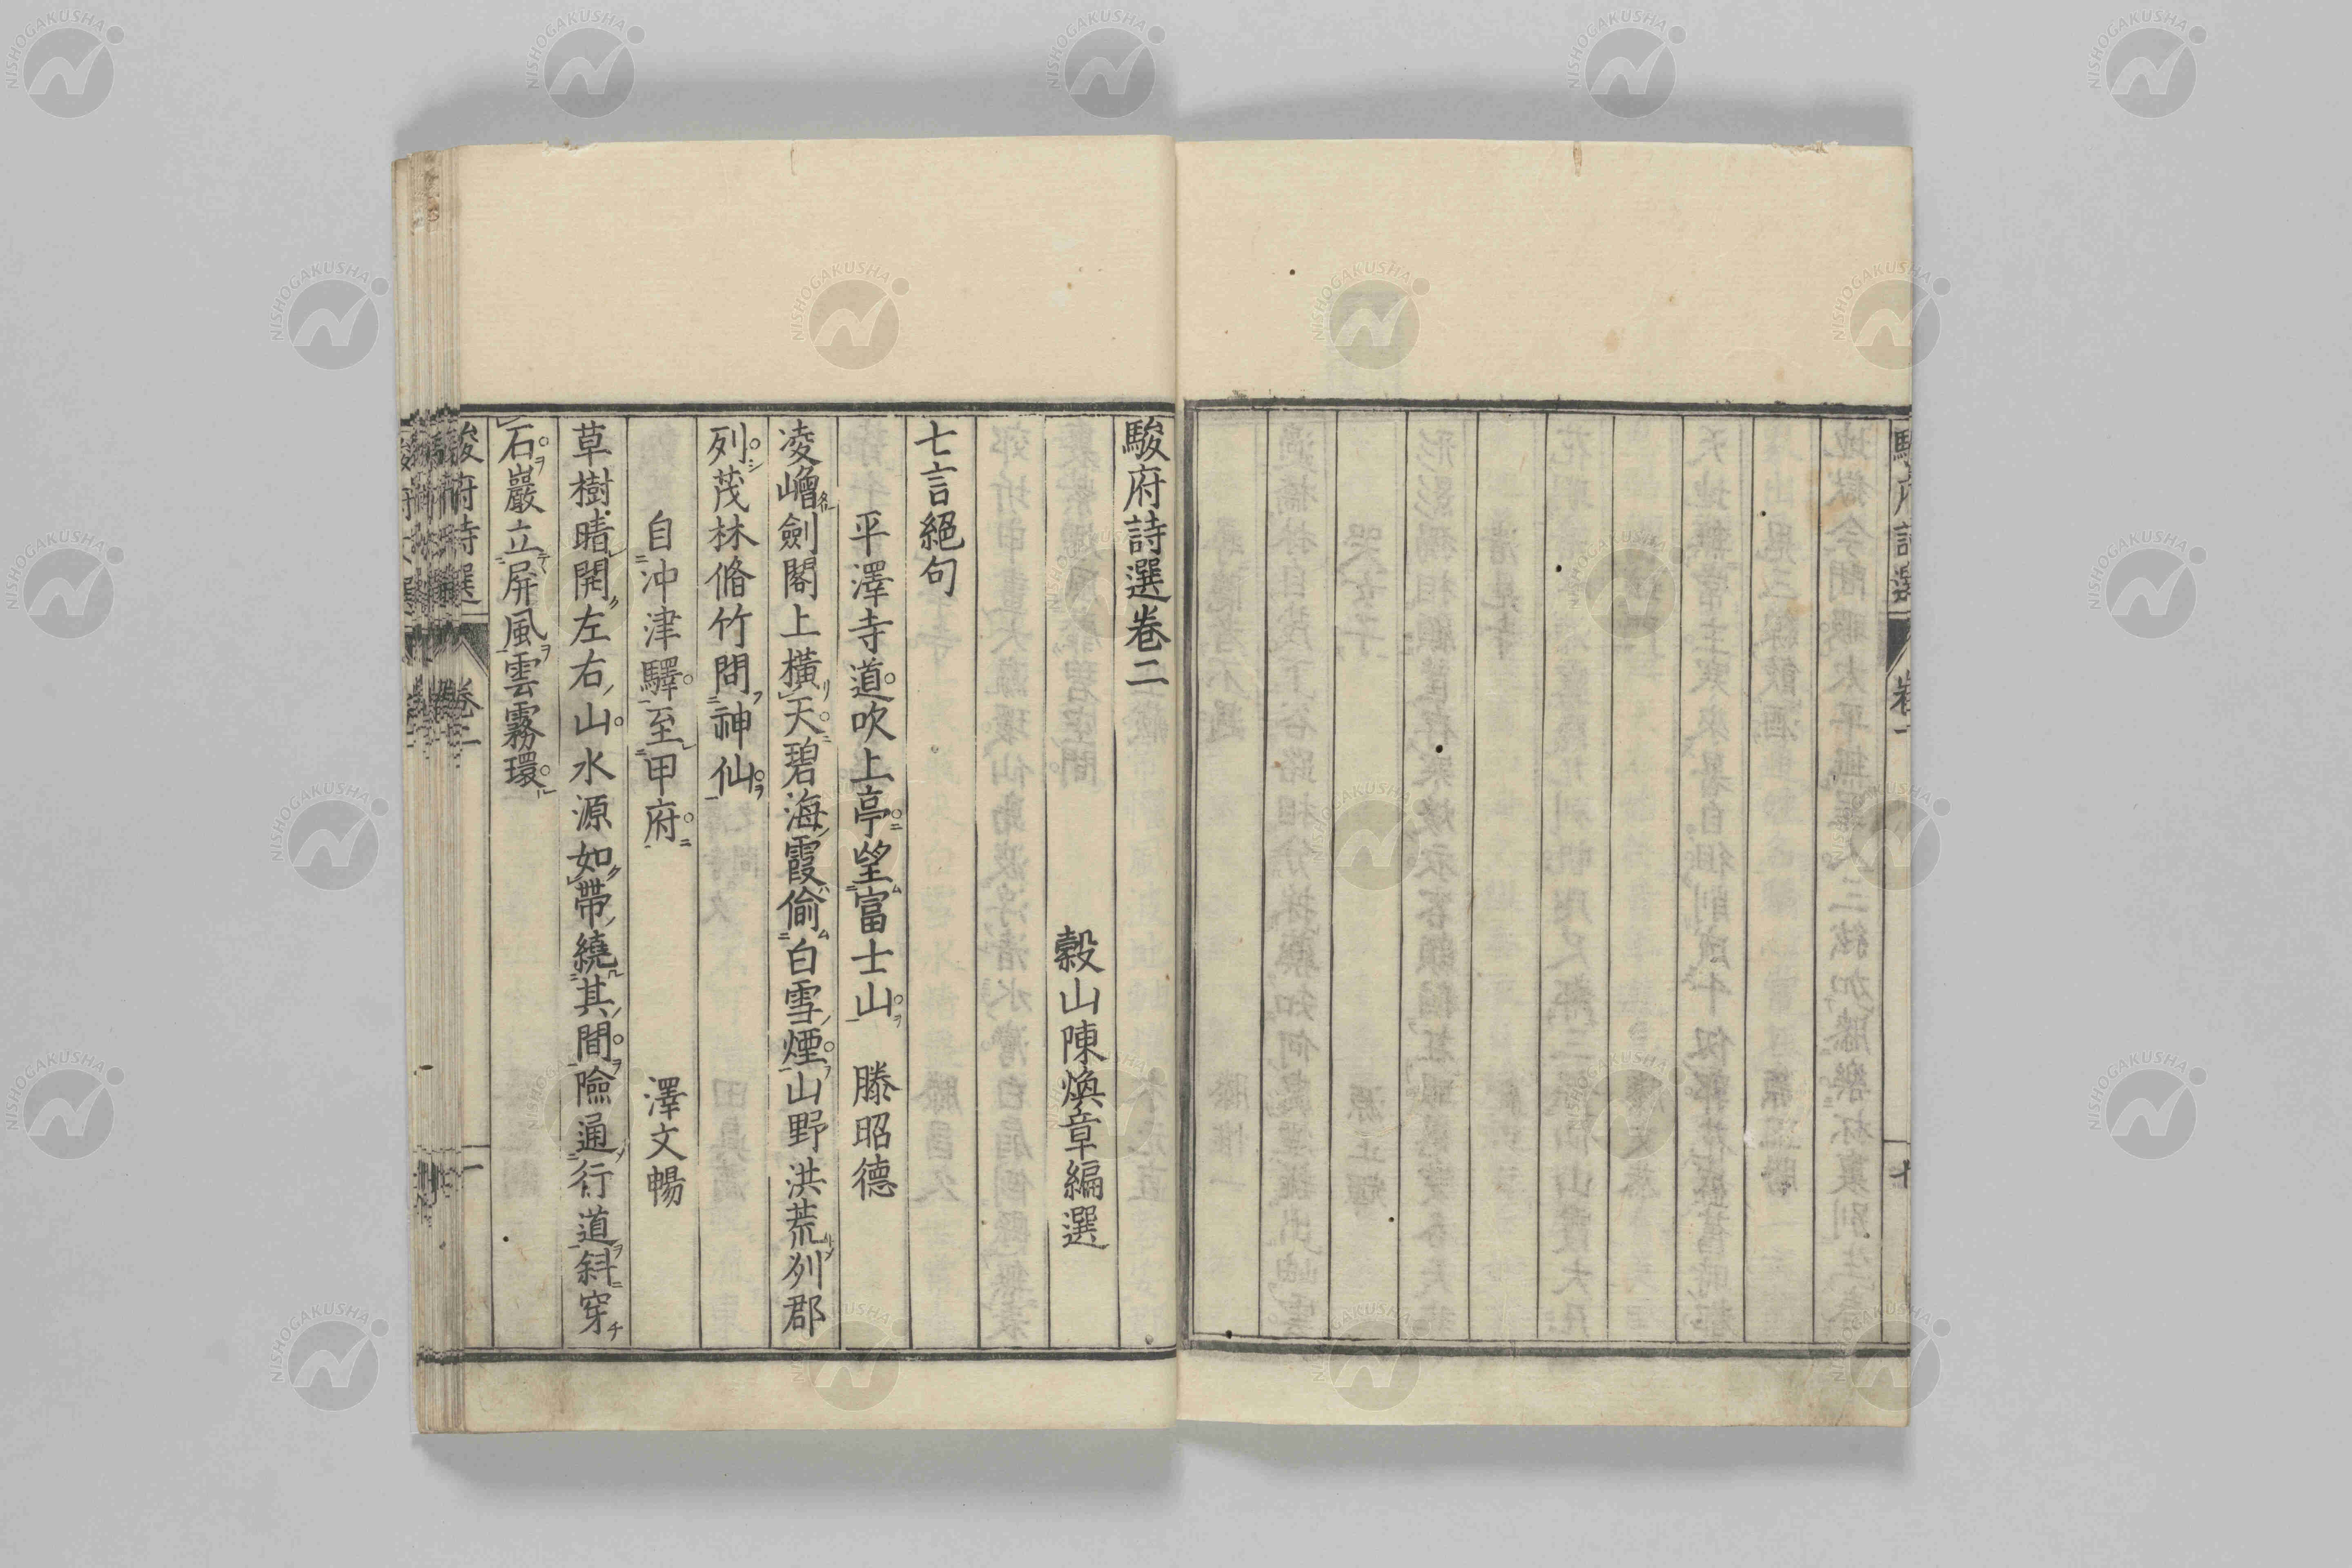 駿府詩選
卷一
十
駿府詩選卷二
穀山陳煥章編選
七言絕句
平澤寺道吹上亭望富士山　滕昭德
凌嶒劍閣上橫天碧海霞偷白雪煙山野洪荒列郡
列茂林脩竹問神仙
自沖津驛至甲府　澤文暢
草樹晴開左右山水源如帶繞其間險通行道斜穿
石巖立屏風雲霧環
駿府詩選
卷二
一
NISHOGAKUSHA